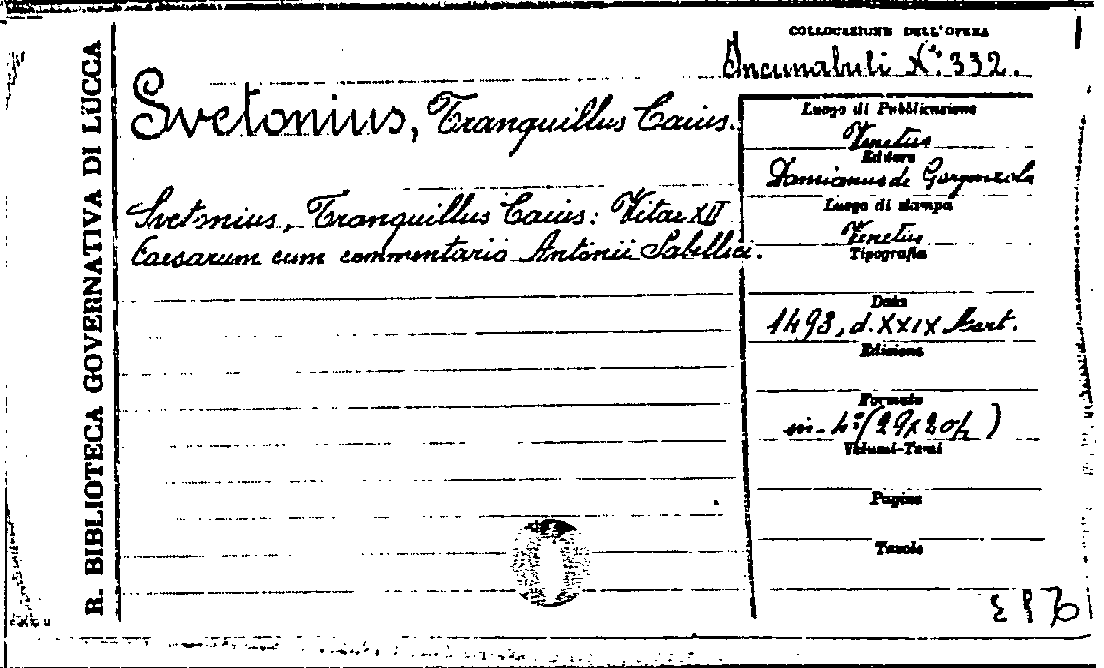 R. BIBLIOTECA GOVERNATIVA DI LUCCA
COLLOCAZIONE DELL'OPERA
Incunabuli N.º 332.
Svetonius, Tranquillus Caius.
Svetonius, Tranquillus Caius: Vitae XII
Caesarum cum commentario Antonii Sabellici.
Luogo di Pubblicazione
Venetus
Editore
Damianus de Gorgonzola
Luogo di stampa
Venetus
Tipografia
Data
1493, d. XXIX Mart.
Edizione
Formato
in-4º (29x20½)
Volumi-Tomi
Pagine
Tavole